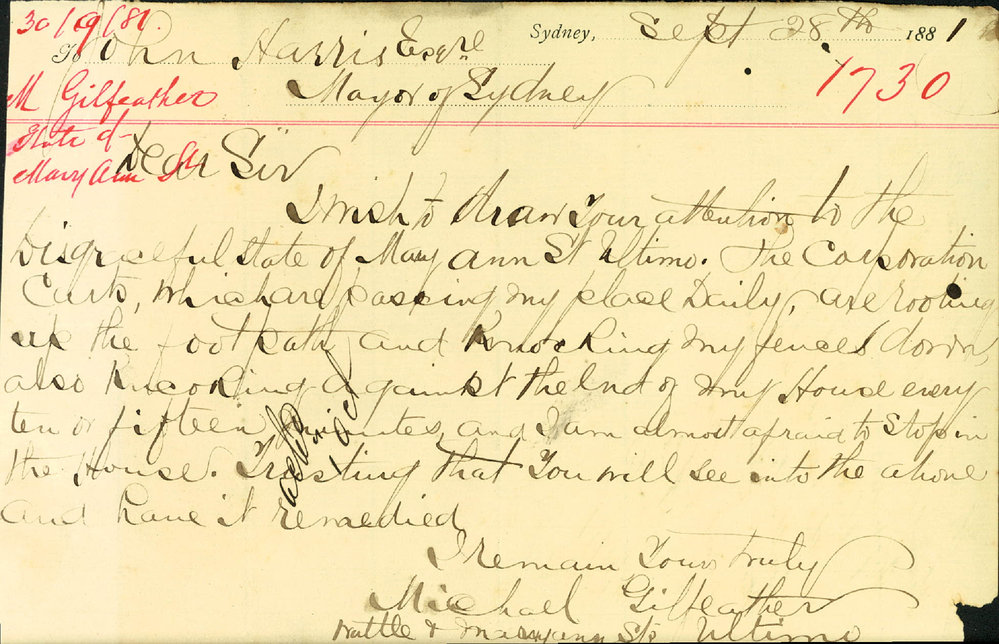 30/9/81.
Sydney, Sept 28th 1881
To John Harris Esqre
M Gilfeather
Mayor of Sydney
1730
State of
Mary Ann St
Dear Sir
I wish to draw your attention to the
Disgraceful state of Mary Ann St Ultimo. The Corporation
Carts, which are passing my place Daily, are rooting
up the footpath and Knocking my fences down,
also Knocking against the End of my House every
ten or fifteen minutes, and I am almost afraid to Stop in
the House. Trusting that You will see into the above
and have it remedied
I remain Yours truly
Michael Gilfeather
Wattle & Maryann Sts Ultimo